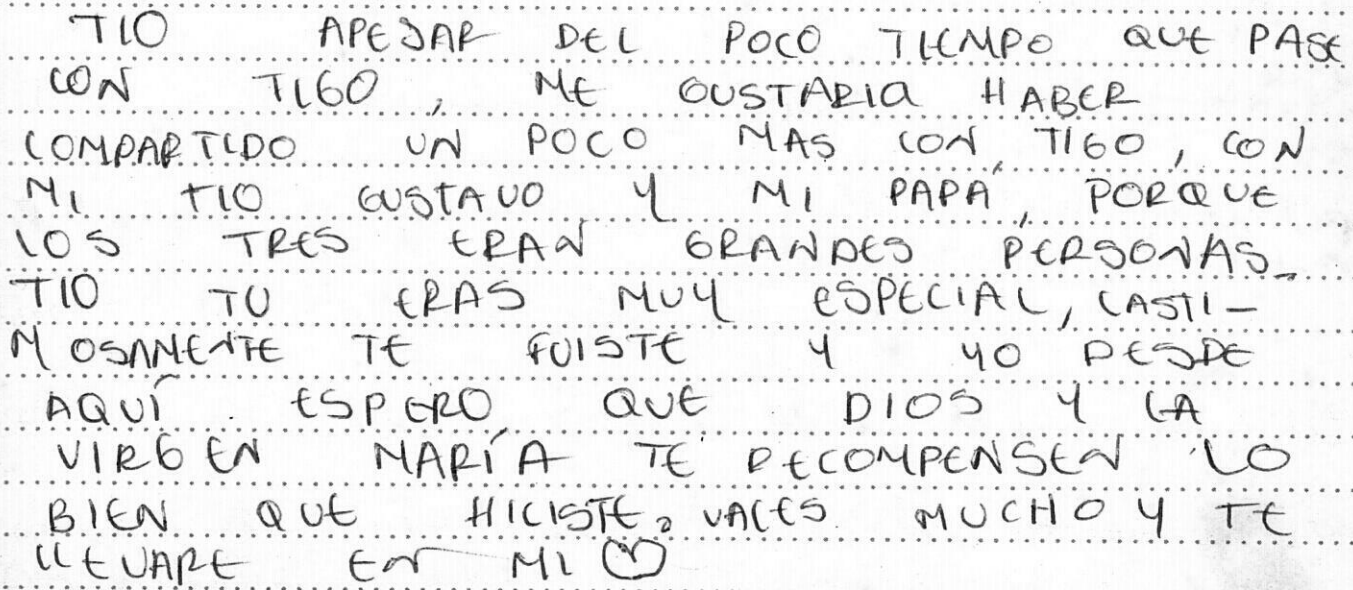 TIO APESAR DEL POCO TIEMPO QUE PASE
CON TIGO, ME GUSTARIA HABER
COMPARTIDO UN POCO MAS CON TIGO, CON
MI TIO GUSTAVO Y MI PAPÁ, PORQUE
LOS TRES ERAN GRANDES PERSONAS_
TIO TU ERAS MUY ESPECIAL, LASTI-
MOSAMENTE TE FUISTE Y YO DESDE
AQUÍ ESPERO QUE DIOS Y LA
VIRGEN MARÍA TE RECOMPENSEN LO
BIEN QUE HICISTE. VALES MUCHO Y TE
LLEVARE EN MI ♡